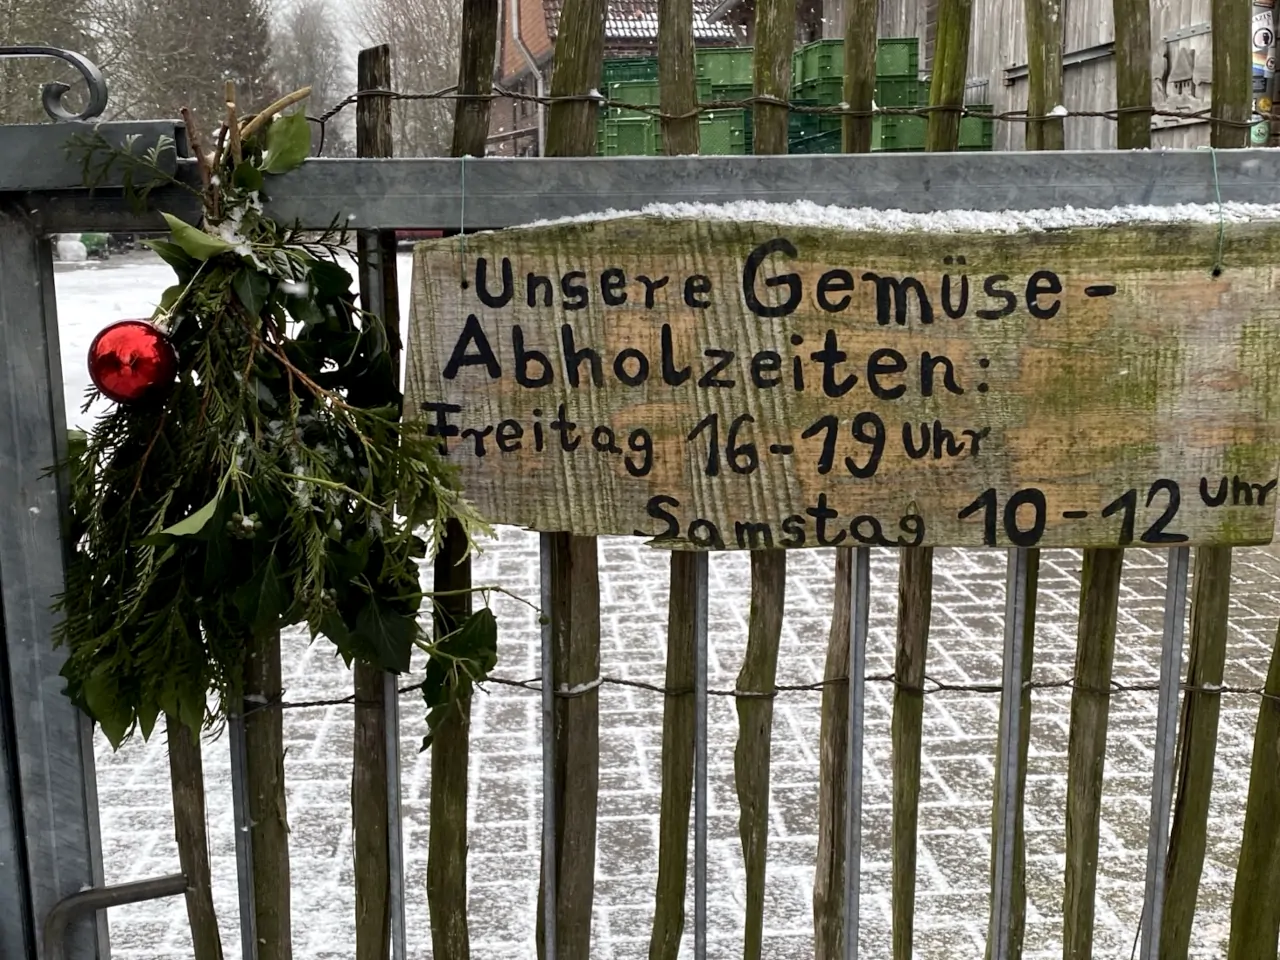 Unsere Gemüse-
Abholzeiten:
Freitag 16-19 Uhr
Samstag 10-12 Uhr